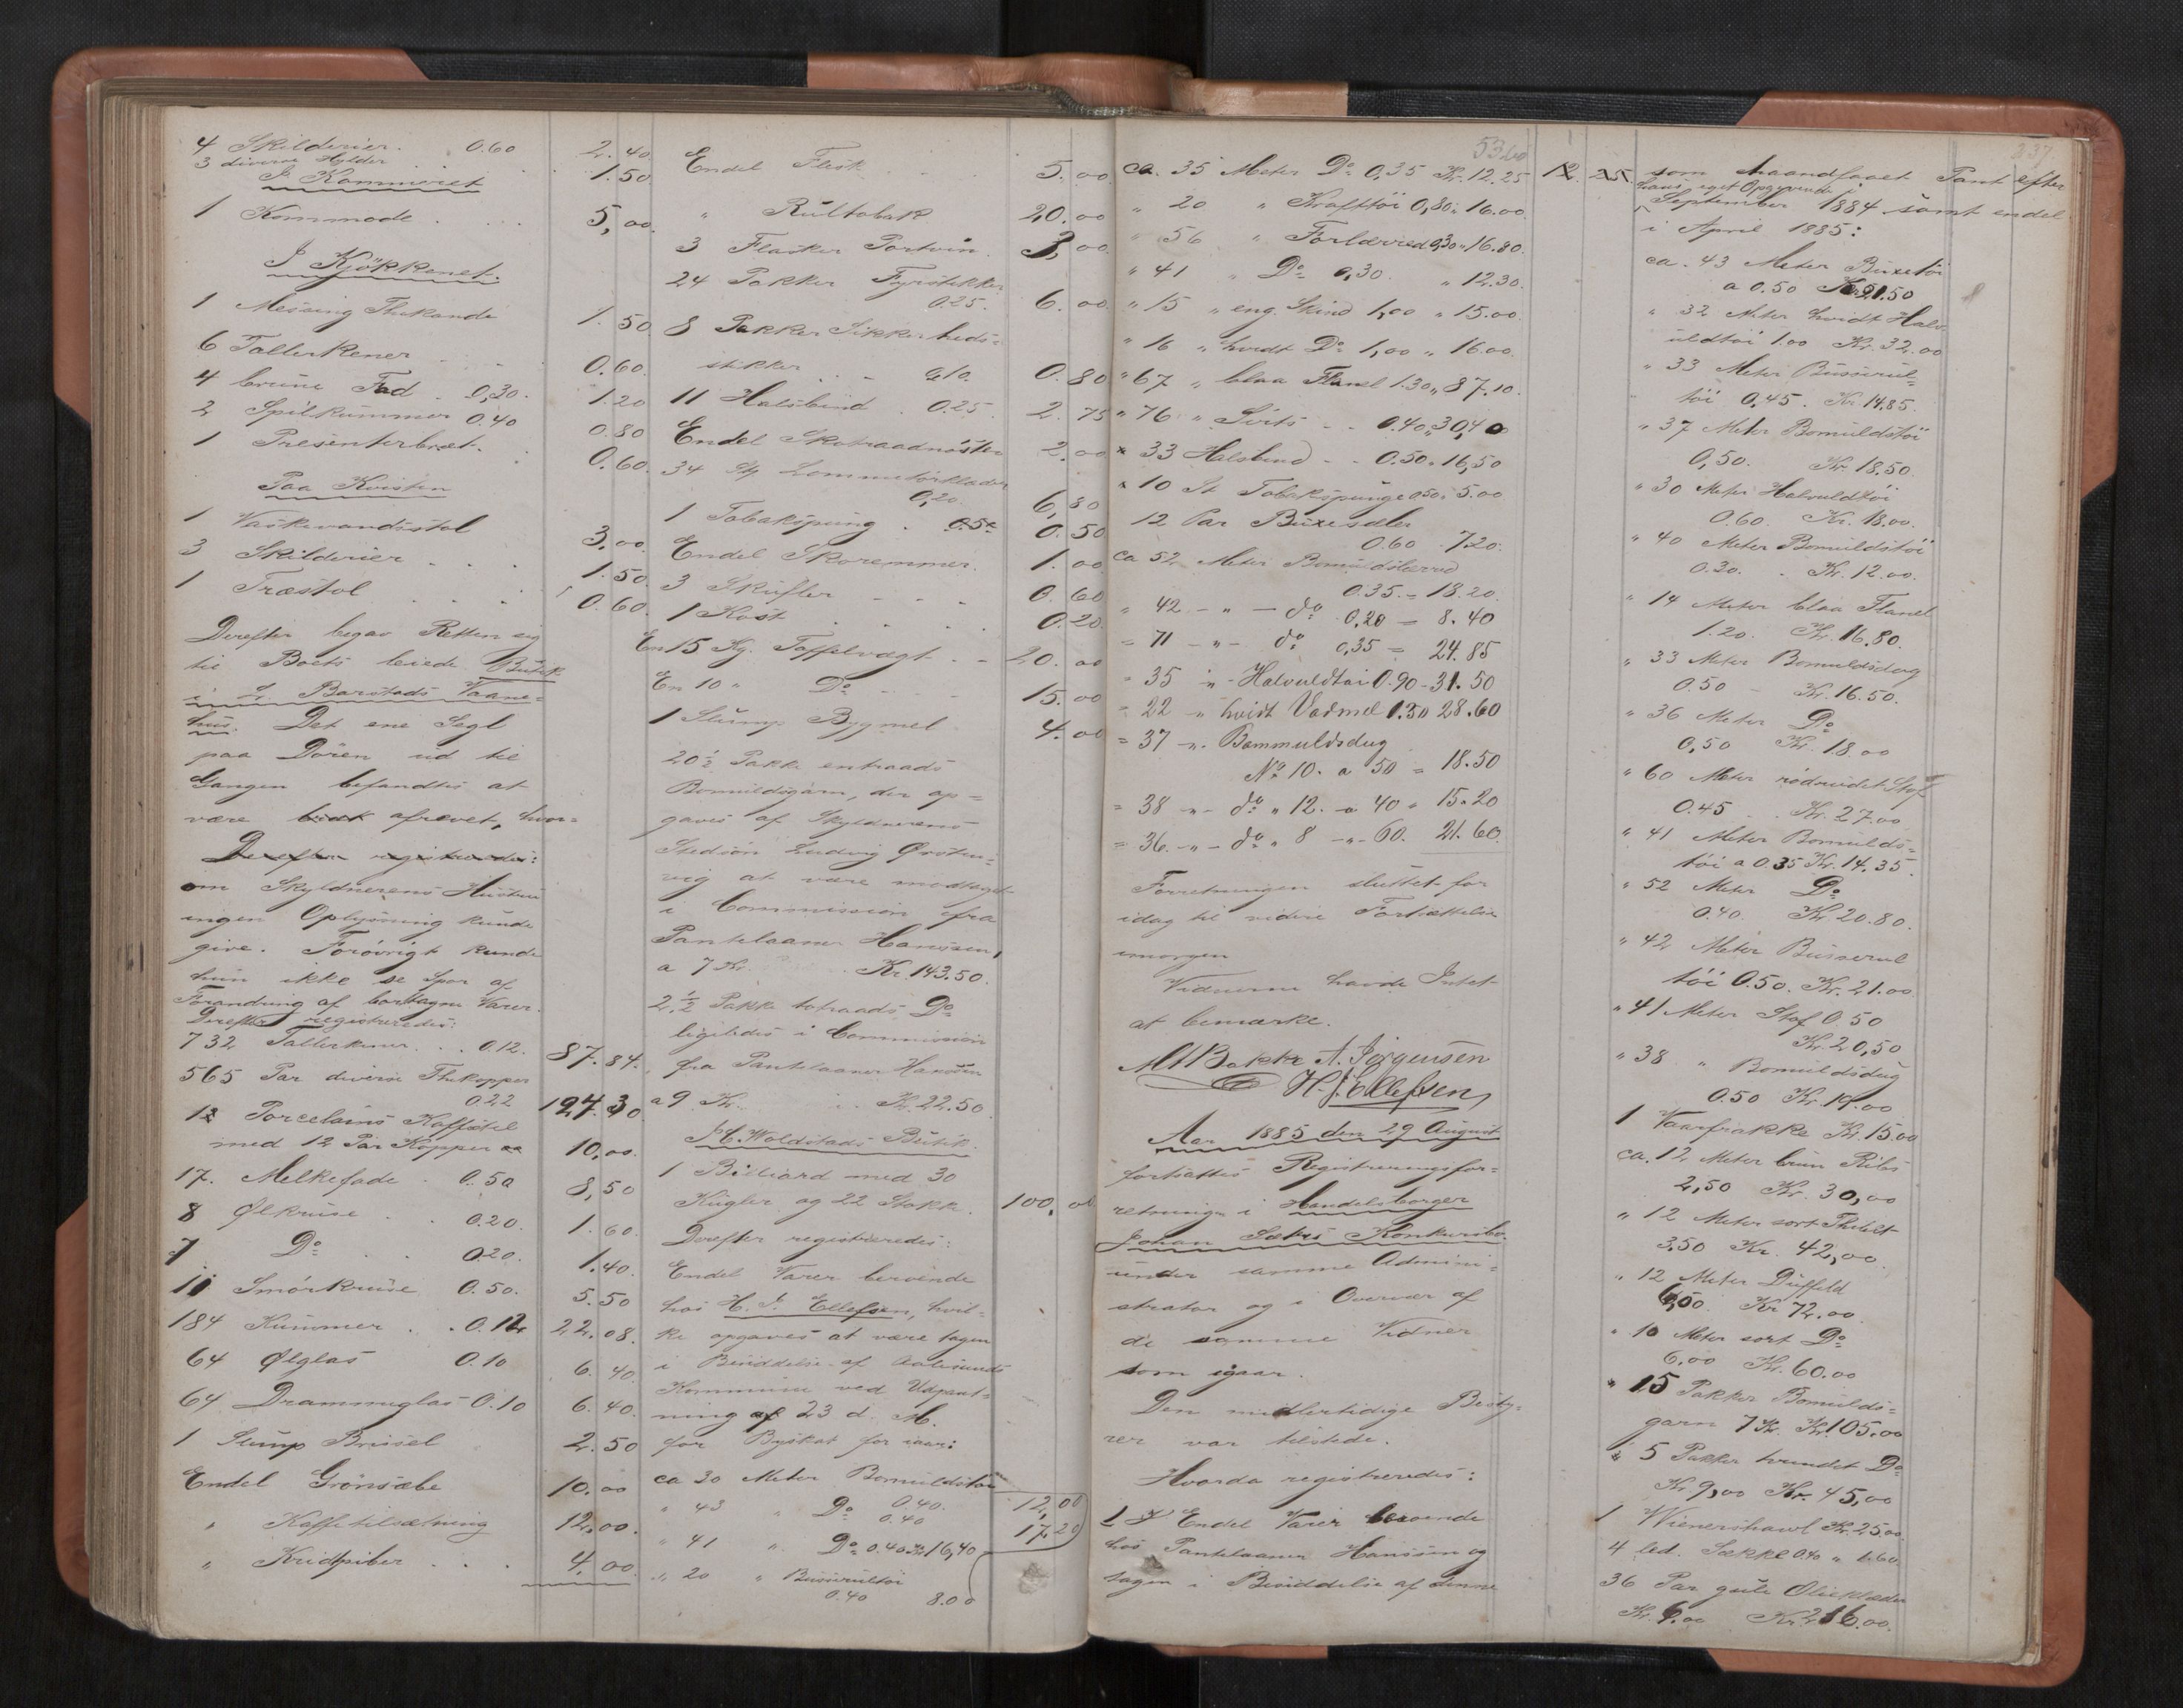 4 Skilderier. 0.60 2.40
3 diverse Hylder . . 1.50
I Kammeret
1 Kommode . . . 5,00.
I Kjökkenet.
1 Messing Thekande 1.50
6 Tallerkener . . . 0.60.
4 brune Fad . 0,30. 1.20
2 Spilkummer 0.40 0.80
1 Presenterbræt. . 0.60.
Paa Kvisten
1 Vaskevandsstol 3,00.
3 Skilderier . . . 1.50.
1 Træstol . . . 0.60.
Derefter begav Retten sig
til Boets leiede Butik
i J. Barstads Vaane-
hus. Det ene Segl
paa Dören ud til
Gangen befandtes at
være brudt afrevet, hvor-
Derefter registreredes:
om Skyldnerens Hustru
ingen Oplysning kunde
give. Forövrigt kunde
hun ikke se Spor af
Forandring af borttagne Varer.
Derefter registreredes:
732 Tallerkener . . 0.12. 87.84.
565 Par diverse Thekopper
0.22 124.30
12 Porcelains Kaffestel
med 12 Par Kopper 10,00.
17. Melkefade . 0.50 8,50
8 Ølkruse . . 0.20. 1.60.
7 Do . . 0.20. 1.40.
11 Smörkruse 0.50. 5.50
184 Kummer . . 0.12 22.08.
64 Ølglas 0.10 6.40.
64 Drammeglas 0.10 6.40.
1 Slump Brissel 2.50
Endel Grönsæbe 10.00
" Kaffetilsætning 12.00.
" Kridtpiber . . . 4,00.
Endel Flesk . . . 5.00
" Rultobak 20.00
3 Flasker Portvin. 3,00
24 Pakker Fyrstikker
0.25. 6.00
8 Pakker Sikkerheds-
stikker . . 0.10. 0.80
11 Halsbind . 0.25. 2.75
Endel Skotraadnöster 2.00
34 St Lommetörklæder
0,20. 6,80
1 Tobakspung . 0.50 0.50
Endel Skoremmer. 1.00
3 Skufler . . . 0.60
1 Kost . . . 0.20
En 15 Kg. Taffelvægt . . 20.00
En 10 " Do . . . 15.00
1 Slump Bygmel 4.00
20½ Pakke entraads
Bomuldsgarn, der op-
gaves af Skyldnerens
Stedsön Ludvig Örsten-
vig at være modtaget
i Commission fra
Pantelaaner Hanssen,
a 7 Kr. . . Kr. 143.50.
2½ Pakke totraads Do
ligeledes i Commission
fra Pantelaaner Hanssen
a 9 Kr. . . Kr. 22.50.
M. Woldstads Butik.
1 Billiard med 30
Kugler og 22 Stokke. 100,00
Derefter registreredes:
Endel Varer beroende
hos H. J. Ellefsen, hvil-
ke opgaves at være tagen
i Besiddelse af Aalesunds
Kommune ved Udpant-
ning af 23 d. M.
for Byskat for iaar:
ca 30 Meter Bomuldstöi
0.40. 12,00
" 43 " Do 0.40 17.20
" 41 " Do 0.40 Kr 16,40
" 20 " Busseroultöi
0.40 8.00
53.60
ca. 35 Meter Do 0,35 Kr. 12.25 12.25
" 20 " Krafttöi 0,80 " 16.00.
" 56 " Forlærred 0,30 " 16.80.
" 41 " Do 0,30 " 12.30.
" 15 " eng. Skind 1,00 " 15.00.
" 16 " hvidt Do 1,00 " 16.00.
" 67 " blaa Flanel 1.30 " 87.10.
" 76 " Sirts . . 0.40 " 30,40
" 33 Halsbind . . 0.50 " 16,50
" 10 St Tobakspunge 0,50 " 5.00
12 Par Buxeseler
0.60 7.20.
ca 52 Meter Bomuldslærred
0.35 - 18.20.
" 42 - " - do 0,20 - 8.40
= 71 - " - do 0,35 = 24.85
= 35 " - Halvuldtøi 0.90 - 31.50
= 22 " hvidt Vadmel 1.30 28.60
= 37 " Bommuldsdug
No 10. a 50 = 18.50
= 38 - " - do " 12. a 40 " 15.20
= 36. - " - do " 8 - " - 60. 21.60.
Forretningen sluttet for
idag til videre Fortsættelse
imorgen
Vidnerne havde Intet
at bemærke.
M Bakke A. Jörgensen
H. J. Ellefsen,
Aar 1885 den 29 August
fortsattes Registreringsfor-
retningen i Handelsborger
Johan Sætres Konkursbo
under samme Admini-
strator og i Overvær af
de samme Vidner
som igaar.
Den midlertidige Besty-
rer var tilstede.
Hvorda registreredes:
Endel Varer beroende
hos Pantelaaner Hanssen og
tagen i Besiddelse af denne
237
som haandfaaet Pant efter
hans eget Opgivende i
September 1884 samt endel
i April 1885:
ca. 43 Meter Buxetöi
a 0.50 Kr. 21.50
" 32 Meter hvidt Halv-
uldtöi 1.00 Kr. 32.00
" 33 Meter Busserul-
töi 0,45. Kr. 14.85.
" 37 Meter Bomuldstöi
0,50. Kr. 18.50.
" 30 Meter Halvuldtöi
0.60. Kr. 18.00.
" 40 Meter Bomuldstöi
0.30. . Kr. 12.00.
" 14 Meter blaa Flanel
1.20. Kr. 16.80.
" 33 Meter Bomuldsdug
0.50 - Kr. 16.50.
" 36 Meter Do
0,50 Kr. 18.00
" 60 Meter rödrudet Stof
0.45 . Kr. 27.00
" 41 Meter Bomulds-
töi a 0 35 Kr. 14.35.
" 52 Meter Do
0.40. Kr. 20.80.
" 42 Meter Busserul
töi 0.50. Kr. 21.00.
" 41 Meter Stof 0 50
Kr. 20,50
" 38 " Bomuldsdug
0.50 Kr. 19.00
1 Vaarfrakke Kr. 15.00
ca. 12 Meter brun Ribs
2,50 Kr. 30,00
" 12 Meter sort
3.50 Kr. 42,00.
" 12 Meter Duffeld
6,00. Kr 72.00.
" 10 Meter sort Do
6.00 Kr. 60.00
" 15 Pakker Bomulds-
garn 7 Kr. Kr. 105.00
" 5 Pakker tvundet Do
Kr 9,00 Kr. 45,00
1 Wienershawl Kr. 25.00.
4 led. Sække 0.40 " 1.60.
36 Par gule Olieklæder
Kr. 6.00 Kr. 216.00.